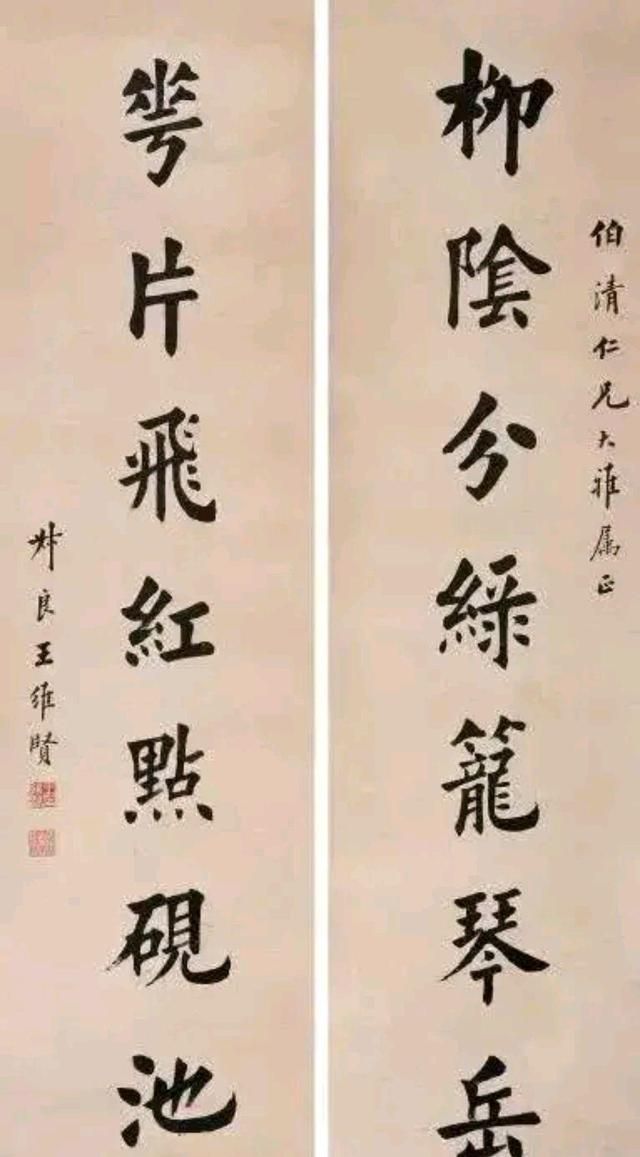 伯清仁兄大雅属正
柳陰分綠籠琴岳
𠌶片飛紅點硯池
叔良王維賢